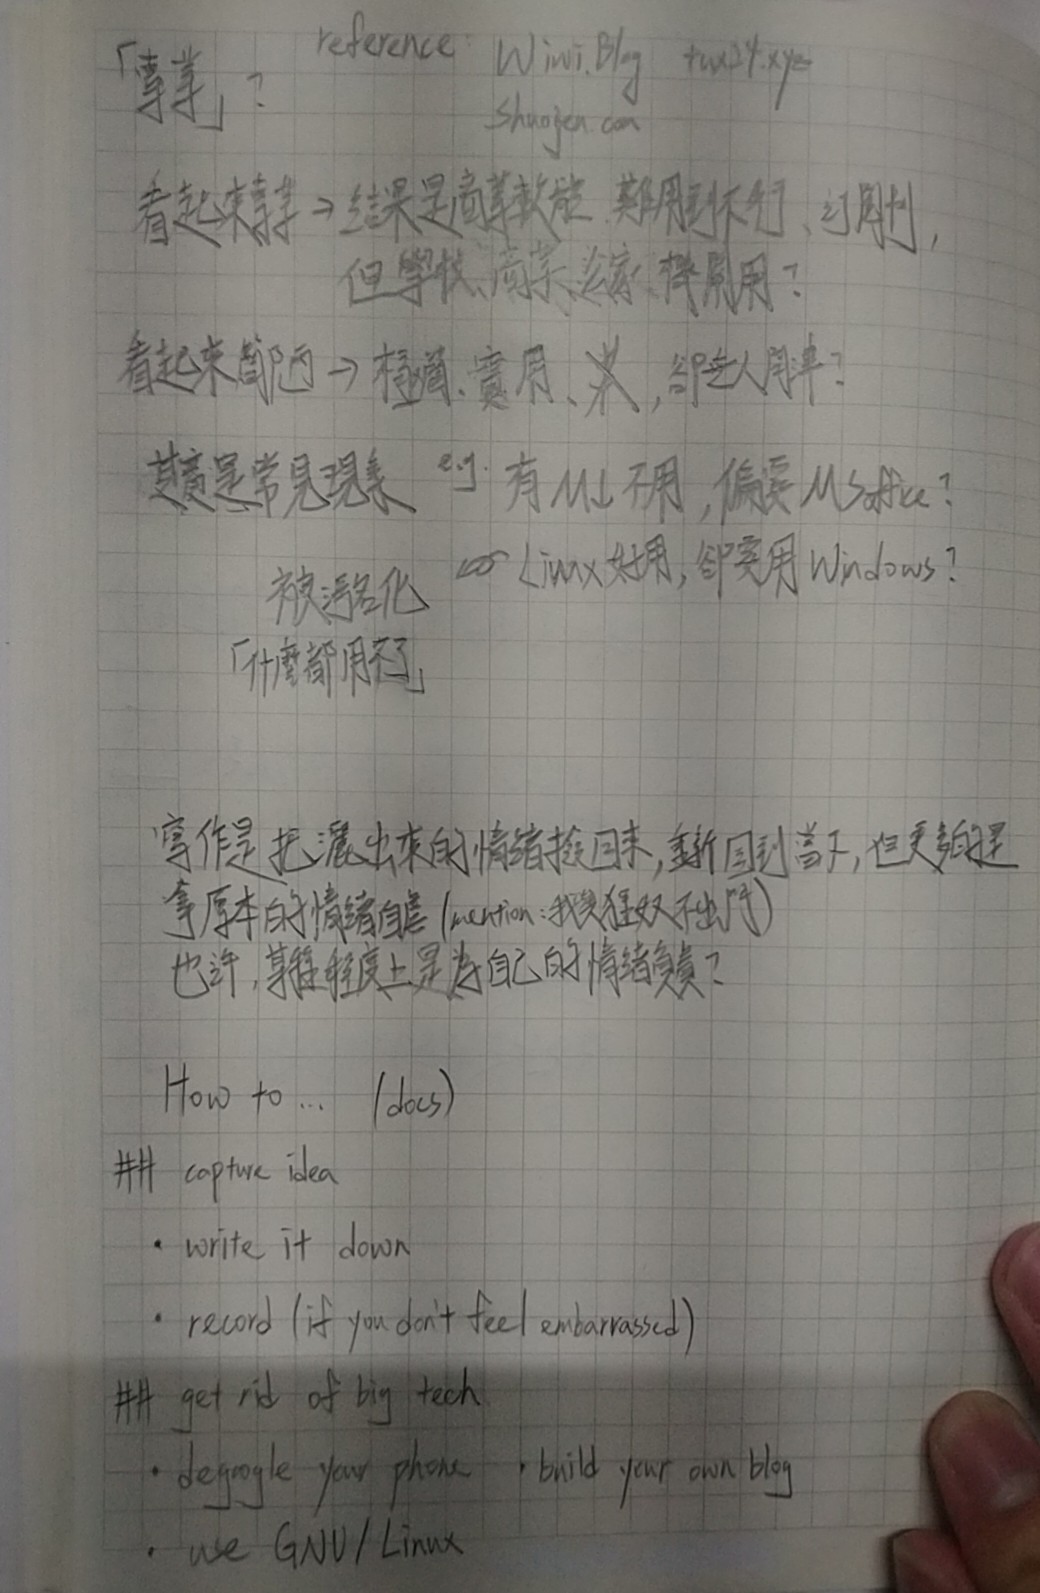 「專業」？ reference: Wiwi.Blog tux24.xyz
Shuojen.com
看起來專業→結果是商業軟體 難用到不行、
但學校、商業、公家機關用？
看起來簡陋→ 實用、，卻無人問津？
其實是常見現象 e.g. 有 不用，偏要MSoffice？
or Linux好用，卻要用Windows？
被污名化
「什麼都用不了」
寫作是把灑出來的情緒撿回來，重新回到當下，但更多的是
拿原本的情緒自虐(mention:我獎狂奴不出門)
也許，某種程度上是為自己的情緒負責？
How to... (docs)
## capture idea
• write it down
• record (if you don't feel embarrassed)
## get rid of big tech
• degoogle your phone • build your own blog
• use GNU/Linux